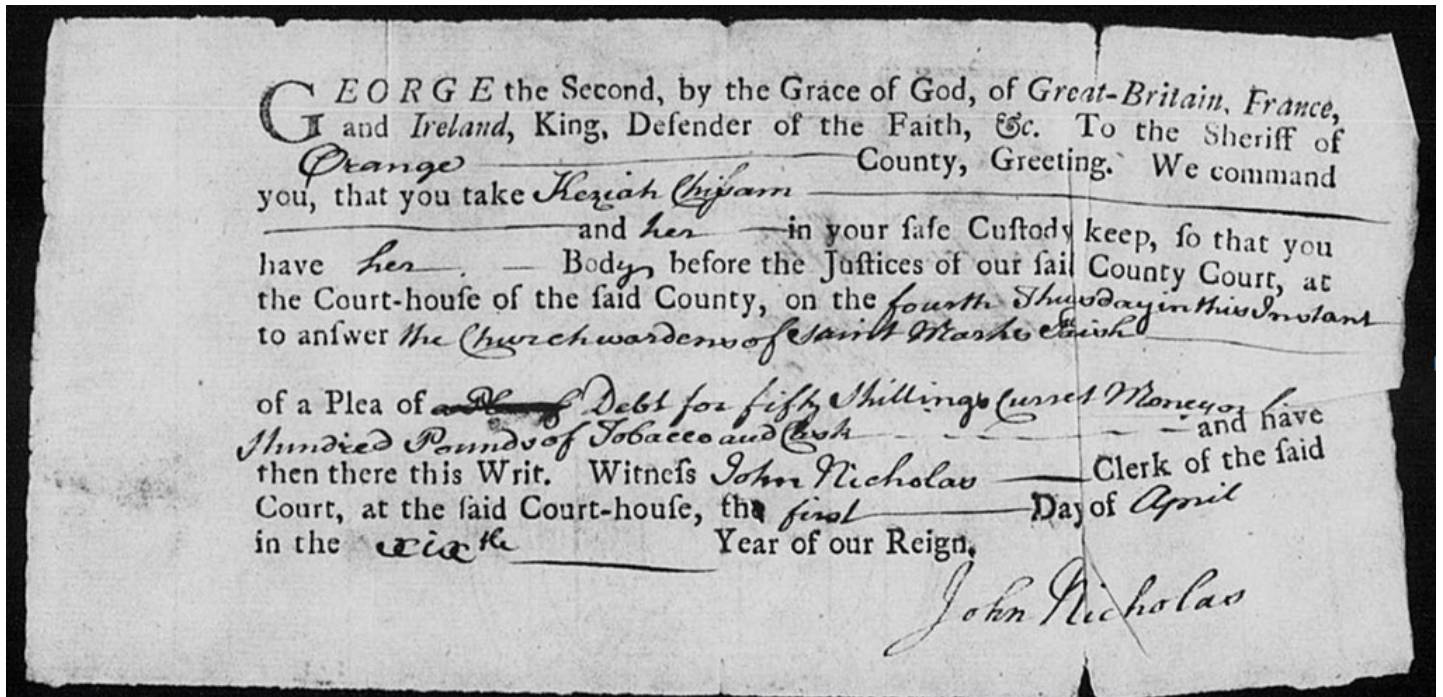 GEORGE the Second, by the Grace of God, of Great-Britain, France,
and Ireland, King, Defender of the Faith, &c. To the Sheriff of
Orange County, Greeting. We command
you, that you take Keziah Chiſsam
and her in your ſafe Cuſtody keep, ſo that you
have her Body before the Juſtices of our ſaid County Court, at
the Court-houſe of the ſaid County, on the fourth Thursday in this Instant
to anſwer the Churchwardens of Saint Marks Parish
of a Plea of Debt for fifty Shillings Curret Money or
Hundred Pounds of Tobacco and Cask and have
then there this Writ. Witneſs John Nicholas Clerk of the ſaid
Court, at the ſaid Court-houſe, the first Day of April
in the xixth Year of our Reign.
John Nicholas